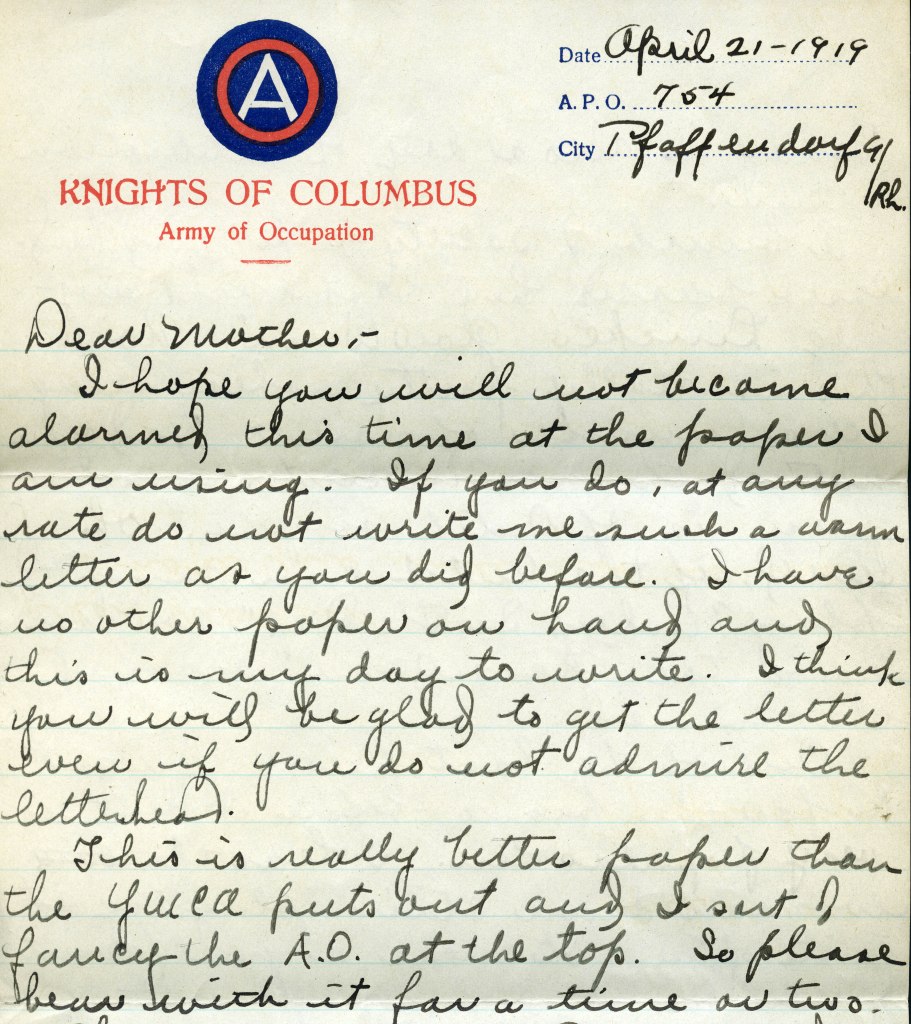 A
KNIGHTS OF COLUMBUS
Army of Occupation
Date April 21-1919
A. P. O. 754
City Pfaffendorf a/Rh.
Dear Mother,-
I hope you will not become
alarmed this time at the paper I
am using. If you do, at any
rate do not write me such a warm
letter as you did before. I have
no other paper on hand and
this is my day to write. I think
you will be glad to get the letter
even if you do not admire the
letterhead.
This is really better paper than
the YMCA puts out and I sort of
fancy the A.O. at the top. So please
bear with it for a time or two.